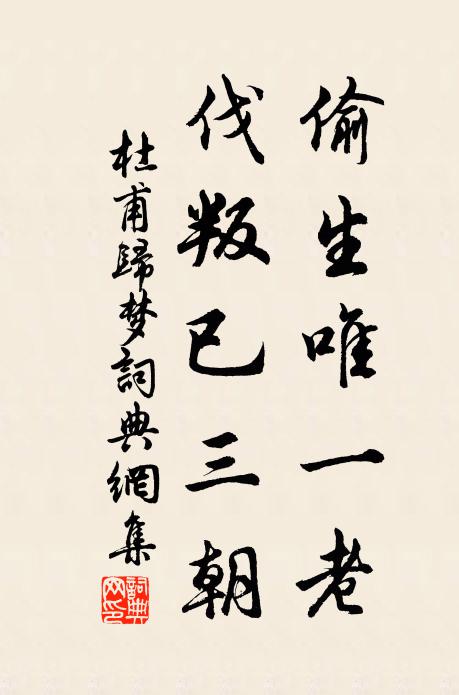 偷生唯一老
伐叛已三朝
杜甫歸梦詞典網集
詞典网印